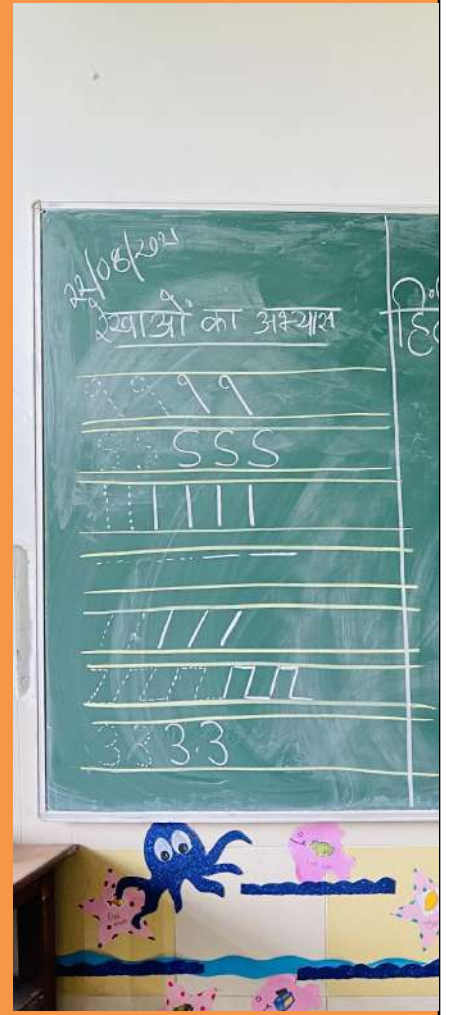 22/08/2024
रेखाओं का अभ्यास
१ १
S S S
| | | |
/ / /
3 3 3.3